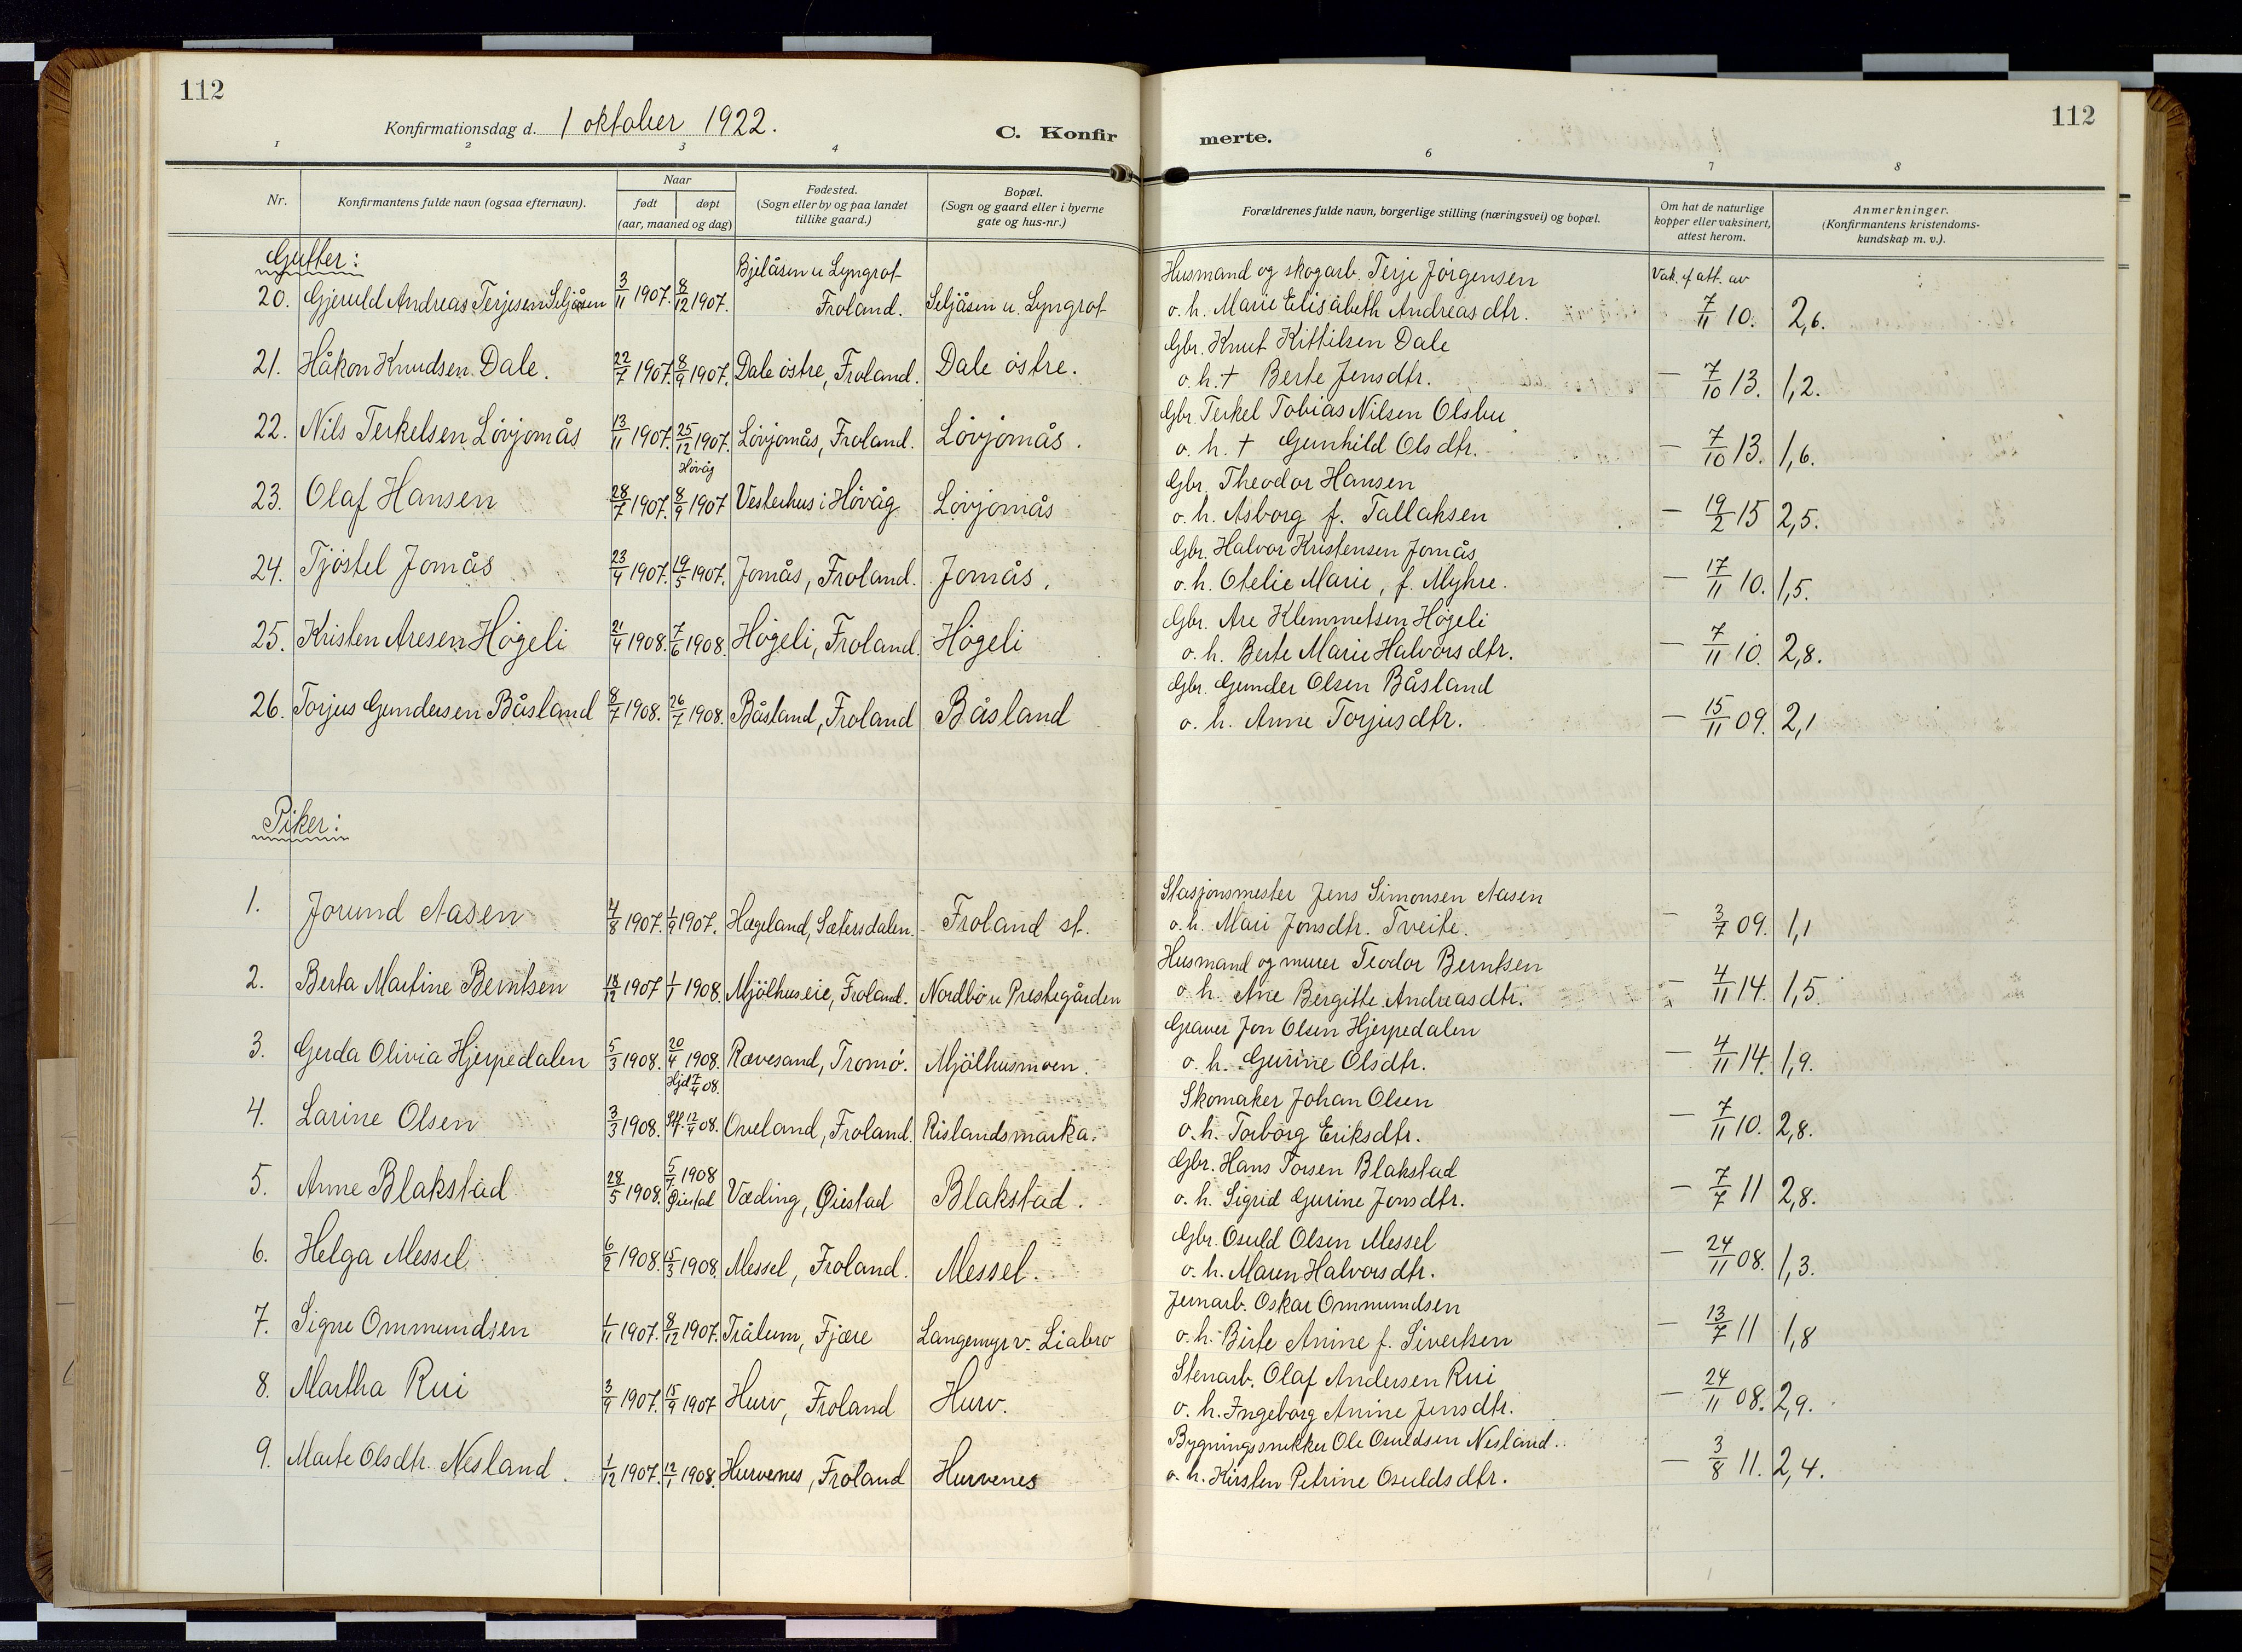 112
Konfirmationsdag d. 1 oktober 1922.
C. Konfir
merte.
112
1 2 3 4 6 7 8
Nr.
Konfirmantens fulde navn (ogsaa efternavn).
Naar
født
døpt
(aar, maaned og dag)
Fødested.
(Sogn eller by og paa landet
tillike gaard.)
Bopæl.
(Sogn og gaard eller i byerne
gate og hus-nr.)
Forældrenes fulde navn, borgerlige stilling (næringsvei) og bopæl.
Om hat de naturlige
kopper eller vaksinert,
attest herom.
Anmerkninger.
(Konfirmantens kristendoms-
kundskap m. v.).
Gutter:
Bjelåsen u Lyngrot
Husmand og skogarb. Terje Jörgensen
Vak. if att. av
20. Gjeruld Andreas Terjesen Seljåsen 3/11 1907. 8/12 1907. Froland. Seljåsen u. Lyngrot o. h. Marie Elisabeth Andreasdtr. 7/11 10. 2,6.
Gbr. Knut Kittilsen Dale
21. Håkon Knudsen Dale. 22/7 1907. 8/9 1907. Dale östre, Froland. Dale östre. o. h. † Berte Jensdtr. — 7/10 13. 1,2.
Gbr. Terkel Tobias Nilsen Olsbu
22. Nils Terkelsen Lövjomås 13/11 1907. 25/12 1907. Lövjomås, Froland. Lövjomås. o. h. † Gunhild Olsdtr. — 7/10 13. 1,6.
Hövåg
Gbr. Theodor Hansen
23. Olaf Hansen 28/7 1907. 8/9 1907 Vesterhus i Hövåg Lövjomås o. h. Asborg f. Tallaksen — 19/2 15 2,5.
Gbr. Halvor Kristensen Jomås
24. Tjöstel Jomås 23/4 1907. 19/5 1907. Jomås, Froland. Jomås. o. h. Otelie Marie, f. Myhre. — 17/11 10. 1,5.
Gbr. Are Klemmetsen Högeli
25. Kristen Aresen Högeli 21/4 1908. 7/6 1908. Högeli, Froland. Högeli o. h. Berte Marie Halvorsdtr. — 7/11 10. 2,8.
Gbr. Gunder Olsen Båsland
26. Torjus Gundersen Båsland 8/7 1908. 26/7 1908. Båsland, Froland Båsland o. h. Anne Torjusdtr. — 15/11 09. 2,1
Piker:
Stasjonsmester Jens Simonsen Aasen
1. Jorund Aasen 4/8 1907. 1/9 1907. Hægeland, Sætersdalen. Froland st. o. h. Mari Jonsdtr. Tveite. — 3/7 09. 1,1
Husmand og murer Teodor Berntsen
2. Berta Martine Berntsen 18/12 1907 1/1 1908. Mjölhuseie, Froland. Nordbö u Prestegården o. h. Ane Bergitte Andreasdtr. — 4/11 14. 1,5.
Graver Jon Olsen Hjerpedalen
3. Gerda Olivia Hjerpedalen 5/3 1908. 20/4 1908. Rævesand, Tromö. Mjölhusmoen. o. h. Gurine Olsdtr. — 4/11 14. 1,9.
Hjd 7/4 08.
Skomaker Johan Olsen
4. Larine Olsen 3/3 1908. 12/4 08. Oveland, Froland. Rislandsmarka. o. h. Torborg Eriksdtr. — 7/11 10. 2,8.
5/7 1908
Gbr. Hans Torsen Blakstad
5. Anne Blakstad 28/5 1908. Øiestad Væding, Øiestad Blakstad. o. h. Sigrid Gurine Jonsdtr. — 7/7 11 2,8.
Gbr. Osuld Olsen Messel
6. Helga Messel 6/2 1908. 15/3 1908. Messel, Froland. Messel. o. h. Maren Halvorsdtr. — 24/11 08. 1,3.
Jernarb. Oskar Ommundsen
7. Signe Ommundsen 1/11 1907. 8/12 1907. Trålum, Fjære Langemyr v. Liabro o. h. Birte Anine f. Sivertsen — 13/7 11 1,8
Stenarb. Olaf Andersen Rui
8. Martha Rui 3/9 1907. 15/9 1907 Hurv, Froland Hurv. o. h. Ingeborg Anine Jensdtr. — 24/11 08. 2,9.
Bygningssnekker Ole Osuldsen Nesland.
9. Marte Olsdtr. Nesland. 1/12 1907. 12/1 1908. Hurvenes, Froland Hurvenes o. h. Kirsten Petrine Osuldsdtr. — 3/8 11. 2,4.